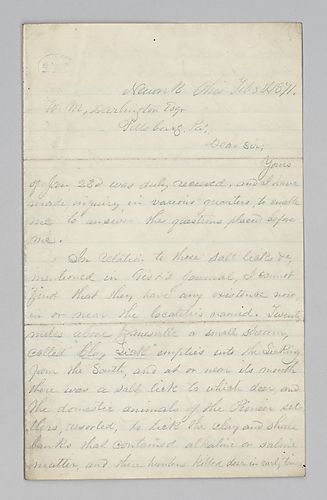 Newark Ohio Feb 3d 1871.
W. M. Darlington Esqr
Pittsburg, Pa.
Dear Sir;
Yours
of Jan 23d was duly received, and I have
made inquiry in various quarters, to enable
me to answer the questions placed before
me.
In relation to those salt licks &c
mentioned in Gist's Journal, I cannot
find that they have any existence now,
in or near the localities named. Twenty
miles above Zanesville a small stream,
called "Clay Lick" empties into the Licking
from the South, and at or near its mouth
there was a salt lick to which deer, and
the domestic animals of the Pioneer set-
tlers, resorted, to lick the clay and shale
banks that contained alkaline or saline
matter, and there hunters killed deer in early